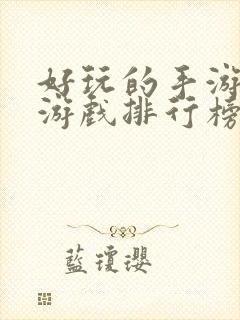 好玩的手游
游戏排行榜
藍瓊瓔